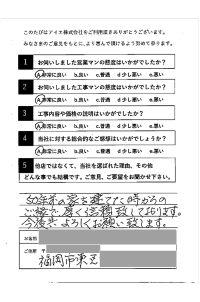 このたびはアイエ株式会社をご利用頂きありがとうございます。
みなさまのご意見をもとに、より喜んで頂けるよう努めて参ります。
1 お伺いしました営業マンの態度はいかがでしたか？
A.非常に良い B.良い C.普通 d.少し悪い e.悪い
2 お伺いしました工事マンの態度はいかがでしたか？
A.非常に良い B.良い C.普通 d.少し悪い e.悪い
3 工事内容や価格の説明はいかがでしたか？
A.非常に良い B.良い C.普通 d.少し悪い e.悪い
4 当社に対する総合的なご感想はいかがでしょうか？
A.非常に良い B.良い C.普通 d.少し悪い e.悪い
5 他店ではなくて、当社を選ばれた理由、その他
どんな事でも結構です。ご意見、ご要望をお聞かせ下さい。
50年前の家を建てた時からの
ご縁で厚く信頼致しております。
今後共よろしくお願い致します。
お名前
ご住所 〒
福岡市東区